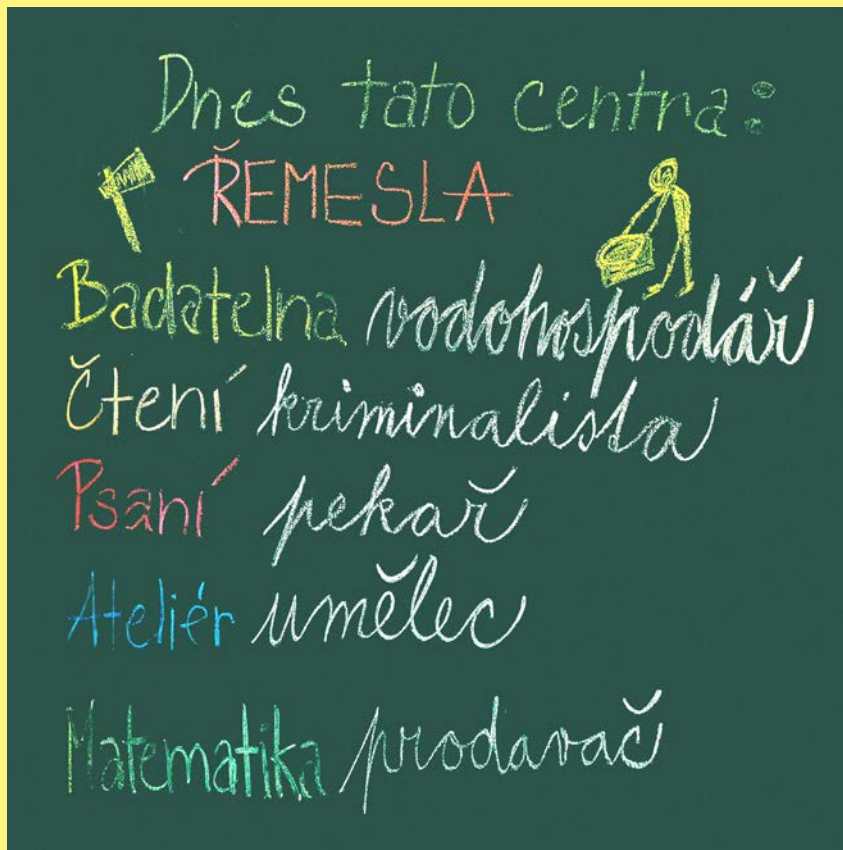 Dnes tato centra:
ŘEMESLA
Badatelna vodohospodář
Čtení kriminalista
Psaní pekař
Ateliér umělec
Matematika prodavač